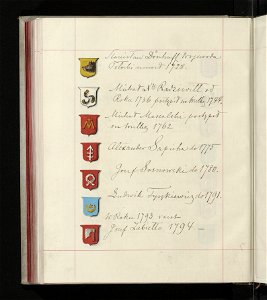 Stanisław Dönhoff Wojewoda
Połocki umarł 1728.
Michał Radziwiłł od
Roku 1736 postąpił na buławę 1744.
Michał Massalski postąpił
na buławę 1762
Alexander Sapieha do 1775
Józef Sosnowski do 1780.
Ludwik Tyszkiewicz do 1791.
W Roku 1793 został
Józef Zabiełło 1794 —